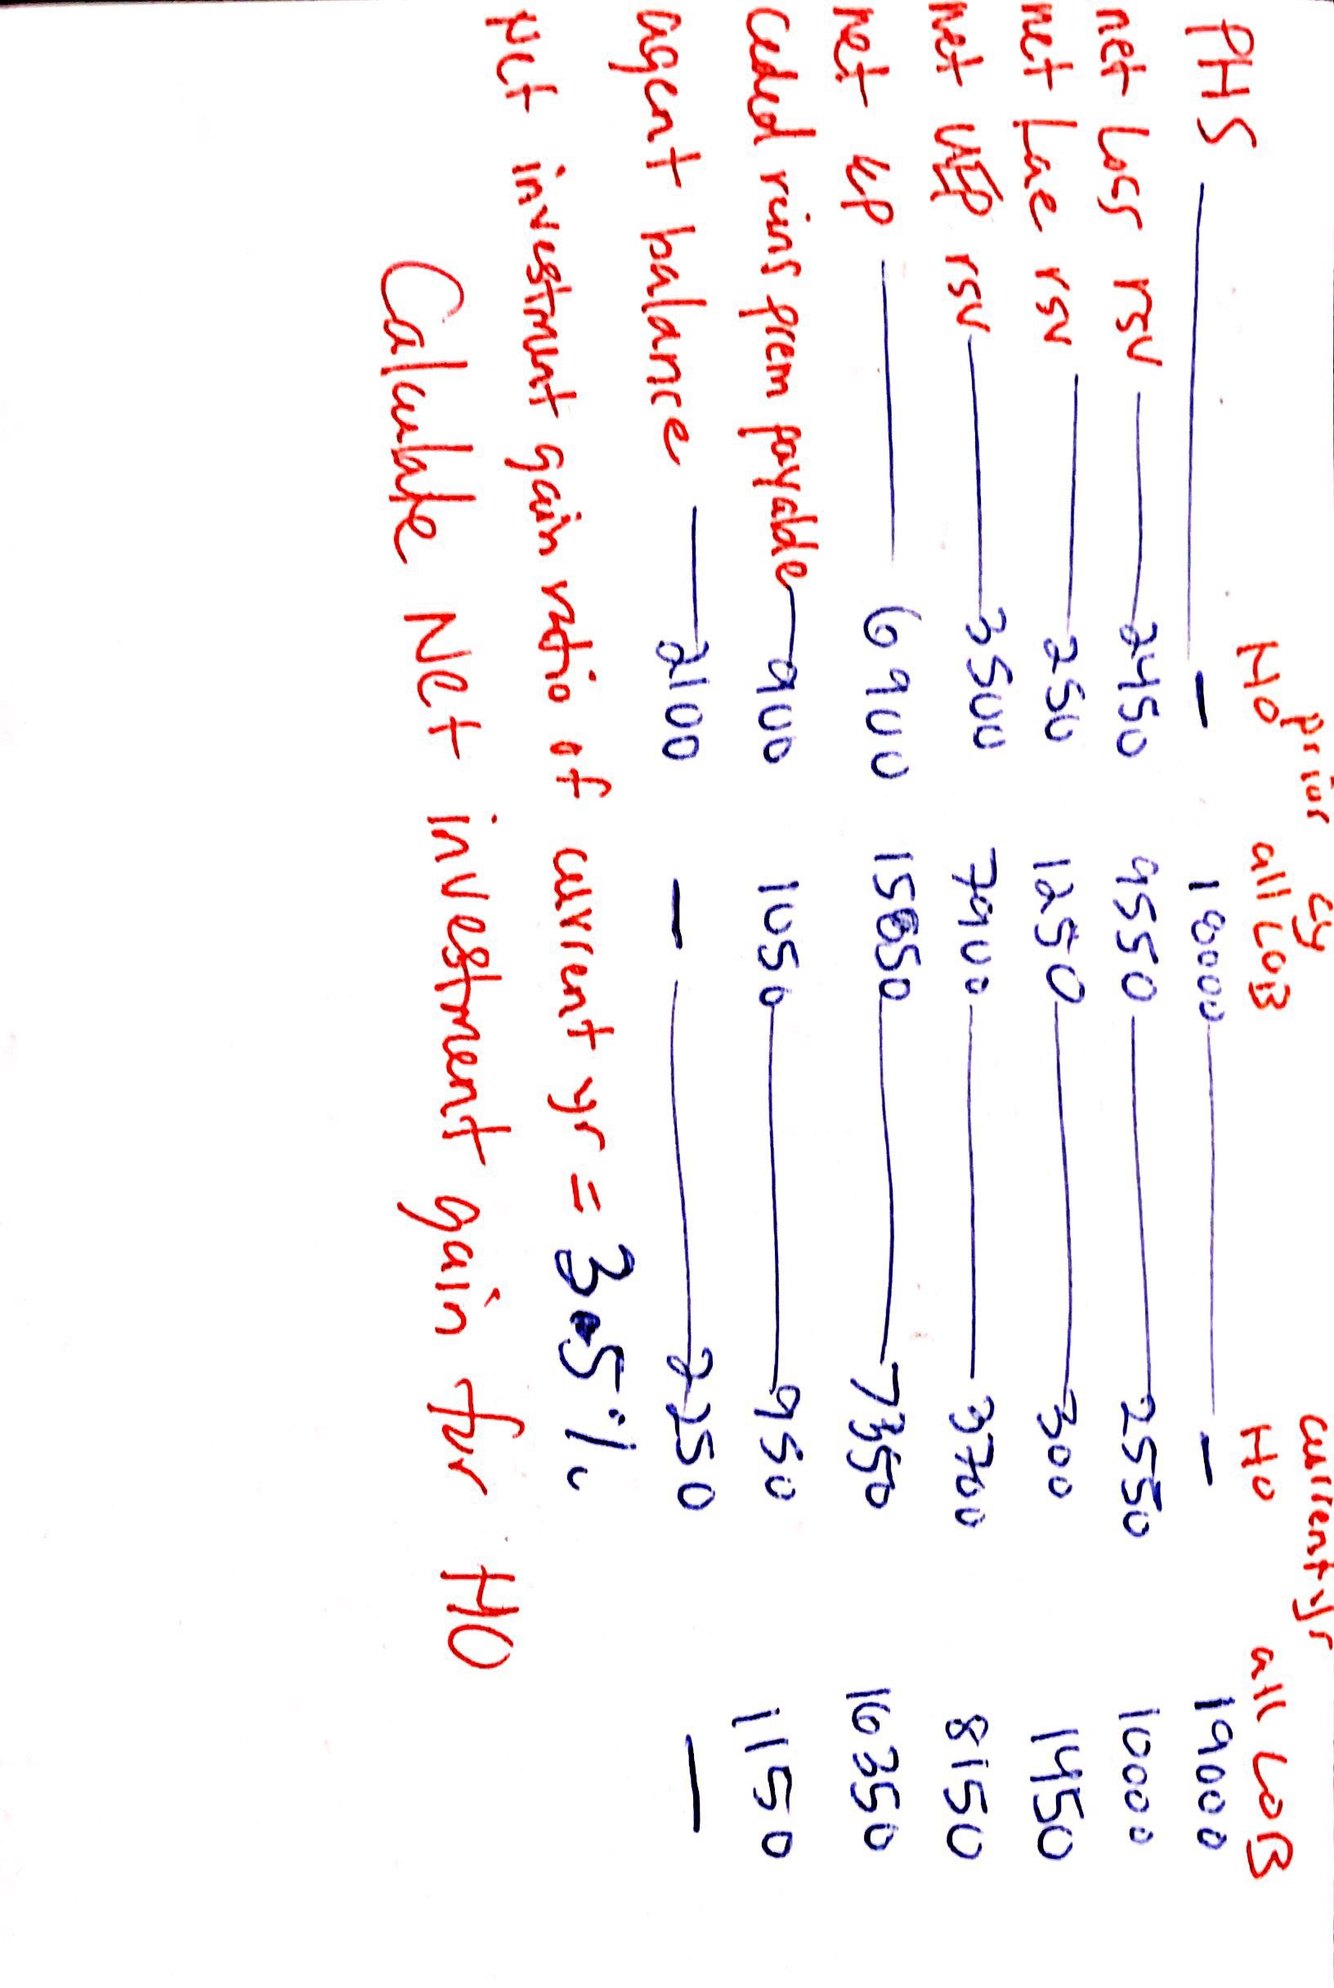 prior cy current yr
HO all LOB HO all LOB
PHS — 18000 — 19000
net Loss rsv 2450 9550 2550 10000
net Lae rsv 250 1250 300 1450
net UEP rsv 3500 7900 3700 8150
net EP 6900 15650 7350 16350
ceded reins prem payable 900 1050 950 1150
agent balance 2100 — 2250 —
Net investment gain ratio of current yr = 3.5%
Calculate Net investment gain for HO